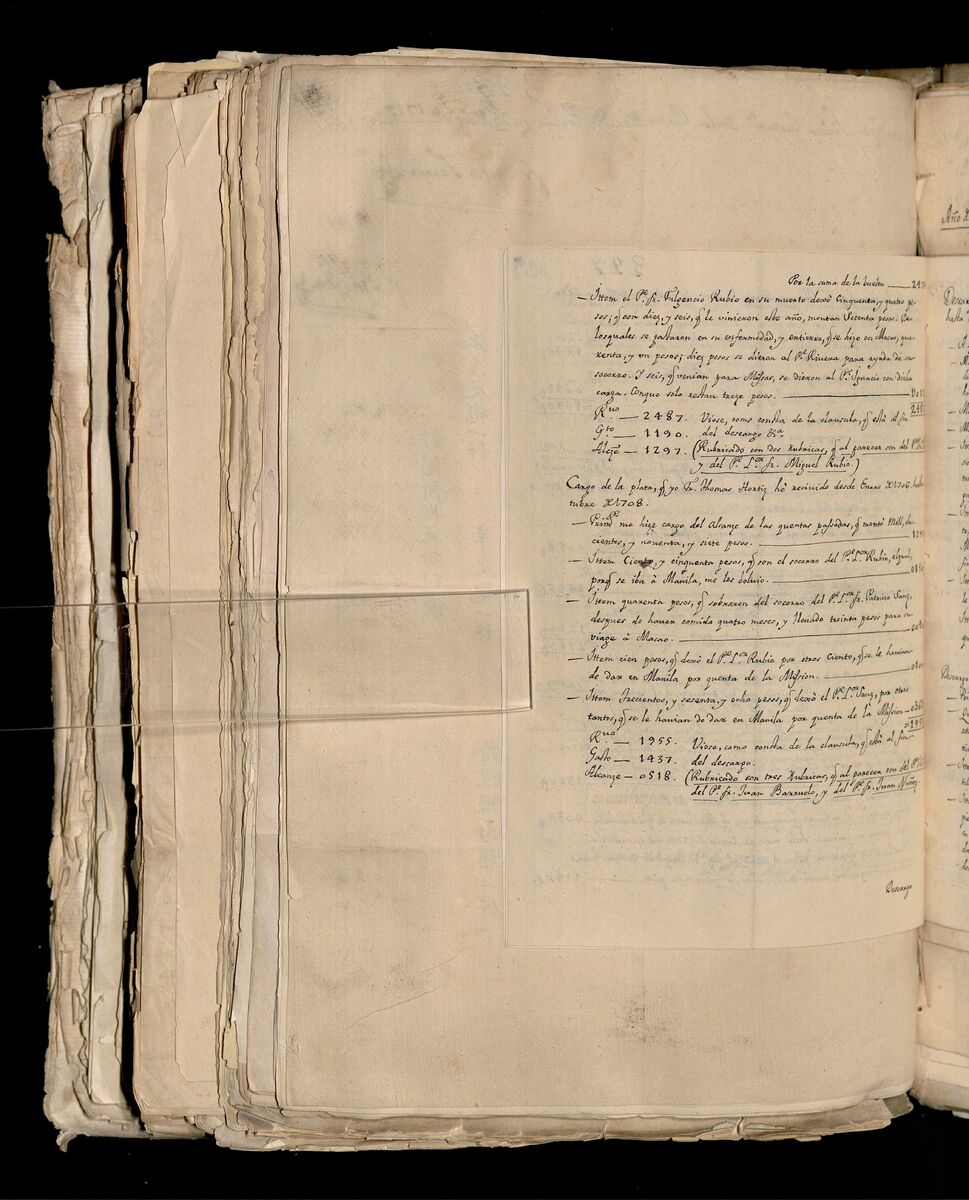 Por la suma de la buelta —— 247
— Ittem el Pe. fr. Fulgencio Rubio en su muerte dexò cinquenta, y quatro pe-
sos; q̃ con diez, y seis, q̃ le vinieron este año, montan Setenta pesos. De
losquales se gastaron en su enfermedad, y entierro, q̃ se hizo en Macao, qua-
renta, y un pesos; diez pesos se dieron al Pe. Rivera para ayuda de su
socorro. Y seis, q̃ venian para Missas, se dieron al Pe. Ignacio con dicha
carga. Conque solo restan treze pesos. ——
Ruo — 2487. Viose, como consta de la clausula, q̃ està al fin
Gto — 1190. del descargo
Alcze — 1297. (Rubricado con dos Rubricas, q̃ al parecer son del Pe.
y del Pe. Lor. fr. Miguel Rubio.)
Cargo de la plata, q̃ yo Fr. Thomas Hortiz hè recivido desde Enero de 1706. hasta
tubre de 1708.
— Primè me hize cargo del Alcanze de las quentas passadas, q̃ montò Mill, du-
cientos, y noventa, y siete pesos. —— 129
— Ittem Ciento, y cinquenta pesos, q̃ son el socorro del Pe. Lor. Rubio, elqual,
porq̃ se iba à Manila, me los bolviò. —— 015
— Ittem quarenta pesos, q̃ sobraron del socorro del Pe. Lor. fr. Patricio Sanz,
despues de haver comido quatro meses, y llevado treinta pesos para su
viage à Macao. ——
— Ittem cien pesos, q̃ dexò el Pe. Lor. Rubio por otros Ciento, q̃ se le havian
de dar en Manila por quenta de la Mission. ——
— Ittem Trecientos, y sesenta, y ocho pesos, q̃ dexò el Pe. Lor. Sanz, por otros
tantos, q̃ se le havian de dar en Manila por quenta de la Mission — 036
=195
Ruo — 1955. Viose, como consta de la clausula, q̃ està al fin
Gasto — 1437. del descargo.
Alcanze — 0518. (Rubricado con tres Rubricas, q̃ al parecer son del Pe.
del Pe. fr. Juan Barruelo, y del Pe. fr. Juan Nuñez
Descargo
Año d
Descar
hasta
Descarg